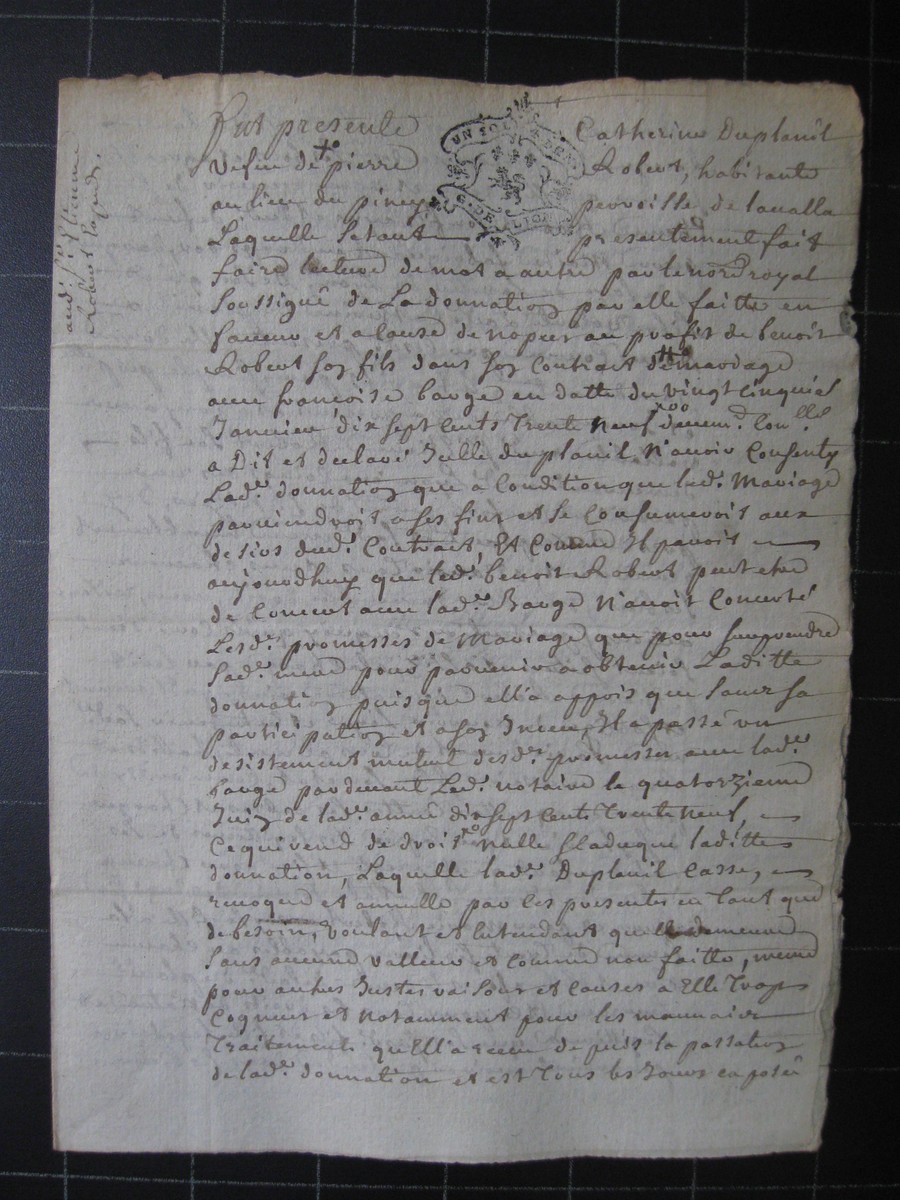 Fut presente Catherine Dupleuil
vefue de pierre Robert, habitante
au lieu du piney perroisse de laualla
Laquelle s'etant presentement fait
faire lecture de mot a autre par le no.re royal
soussigné de La donnation par elle faitte en
faueur et a cause de nopces au profit de benoit
Robert son fils dans son contract de mariage
auec francoise barge en datte du vingt cinquie
Januier dix sept cents trente neuf
a Dit et declaré Icelle dupleuil N'auoir Consenty
Lad.e donnation que a Condition que led. Mariage
paruiendroit a ses fins et se Consumeroit aux
desirs dud. Contract, Et Comme Il paroit
aujourdhuy que led. benoit Robert peut etre
de Concert auec lad.e Barge N'auoit Concerté
Lesd. promesses de Mariage que pour surprendre
sad.e mere pour paruenir a obtenir Laditte
donnation puisque ell'a appris que sans sa
participation et a son Insceu, Il a passé un
desistement mutuel desd. promesses auec lad.e
barge pardeuant Led. notaire le quatorzieme
Juin de lad.e année dix sept Cents Trente Neuf,
Ce qui rend de droit Nulle laditte
donnation, Laquelle lad.e Dupleuil Casse,
reuoque et annulle par les presentes en tant que
de besoin, voulant et Entendant qu'elle demeure
sans aucune valleur et comme non faitte, meme
pour autres Justes raisons et Causes a Elle Trop
Cogneues et Notamment pour les mauuais
Traitements qu'Ell'a receu depuis la passation
de lad.e donnation et est Tous les Jours exposée